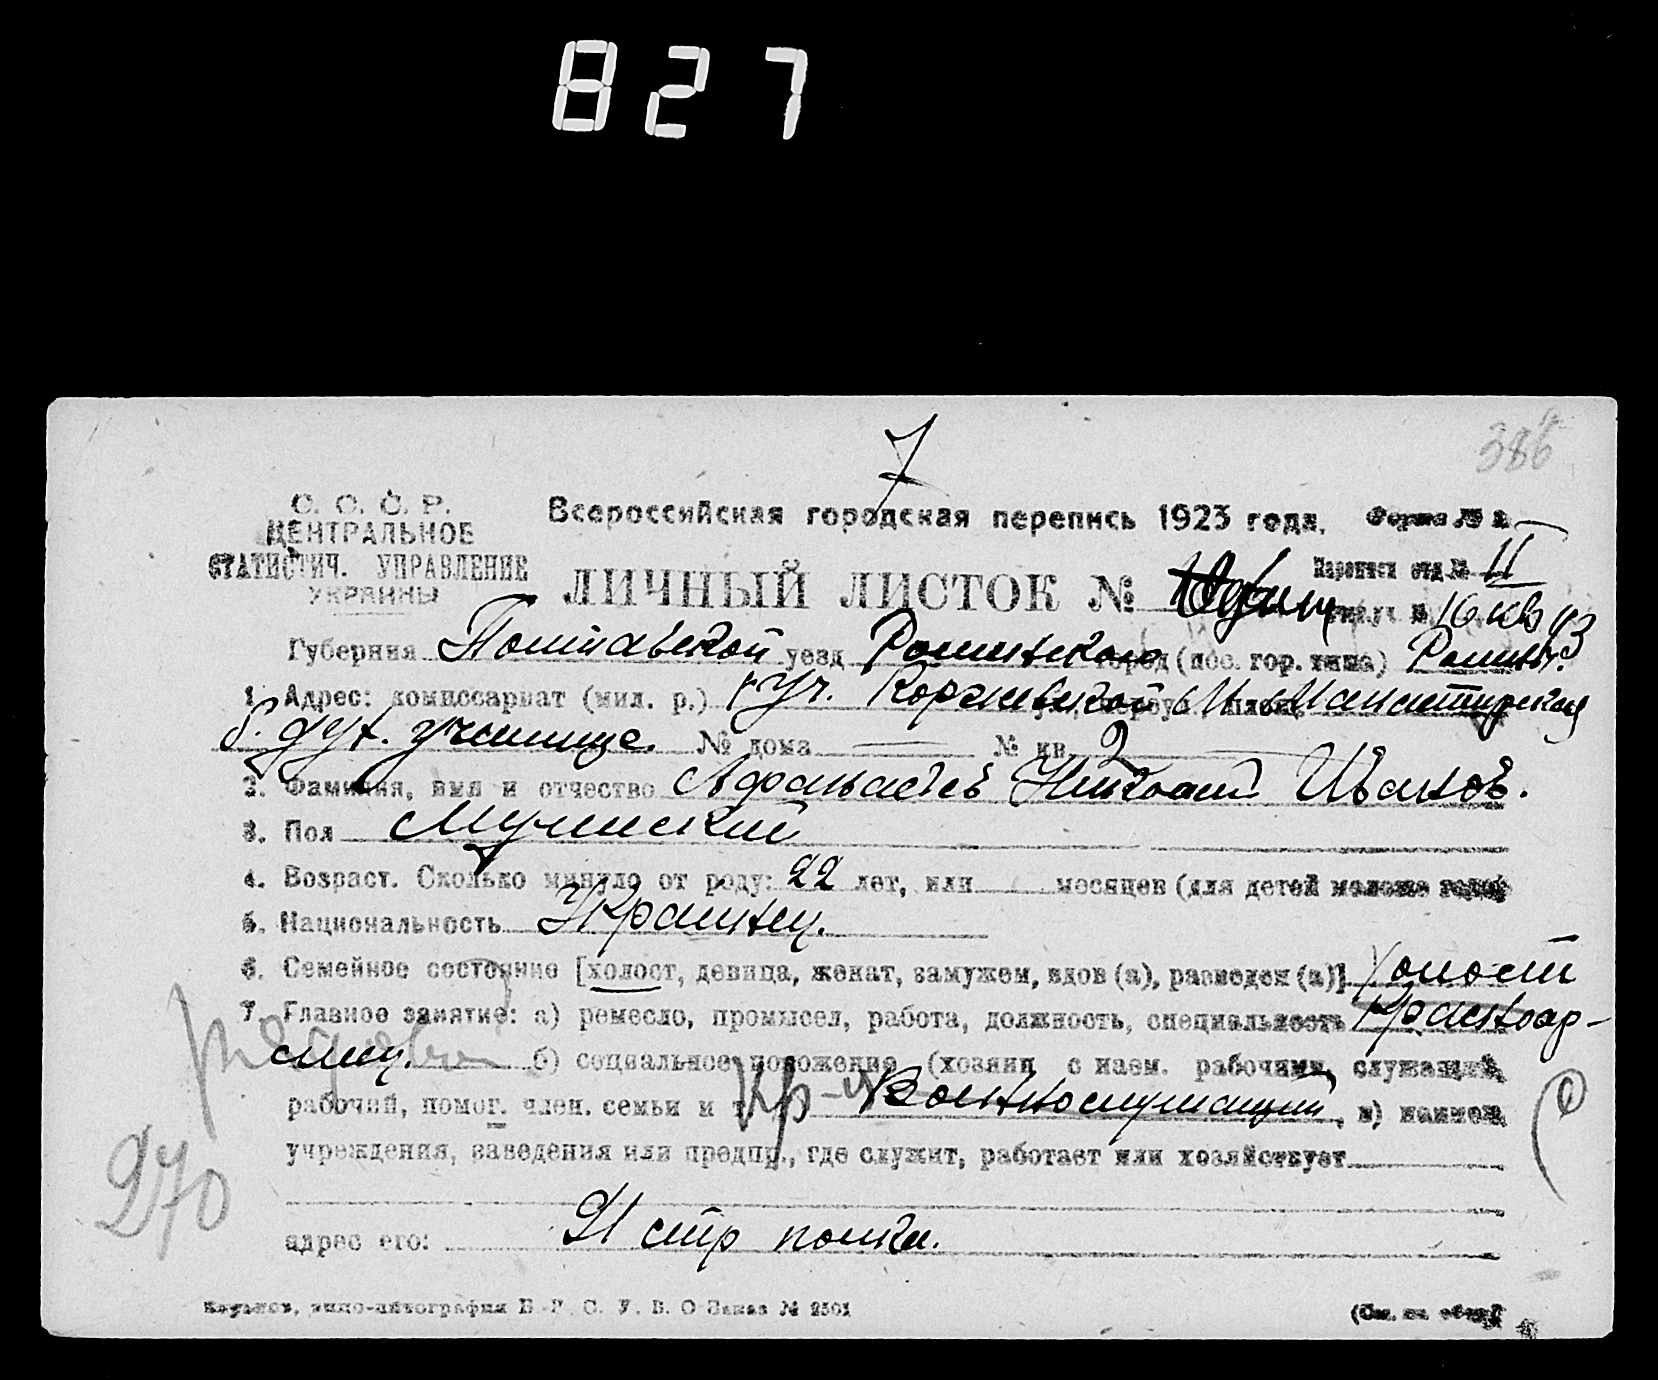 827
7
386
С. С. С. Р.
ЦЕНТРАЛЬНОЕ
СТАТИСТИЧ. УПРАВЛЕНИЕ
УКРАИНЫ
Всероссийская городская перепись 1923 года. Форма № 2
ЛИЧНЫЙ ЛИСТОК №
Перепиcн отд № II
№ 16 кв 93
Губерния Полтавской уезд Роменского город (пос. гор. типа) Ромны
1. Адрес: комиссариат (мил. р.) уг. Коржевской и Манастирская
б. дух. училище. № дома — № кв. 2
2. Фамилия, имя и отчество Афанасьев Николай Иванов.
3. Пол Мужеский
4. Возраст. Сколько минуло от роду: 22 лет, или месяцев (для детей моложе года)
5. Национальность Украинец.
6. Семейное состояние [холост, девица, женат, замужем, вдов (а), разведен (а)] Холост
7. Главное занятие: а) ремесло, промысел, работа, должность, специальность Красноар-
меец. б) социальное положение (хозяин с наем. рабочими, служащий,
рабочий, помог. член. семьи и т Военнослужащий, в) наимен.
учреждения, заведения или предпр., где служит, работает или хозяйствует
270
адрес его: 21 стр полка.
Харьков, типо-литография В. У. С. У. В. О Заказ № 2501
(См. на обор.)